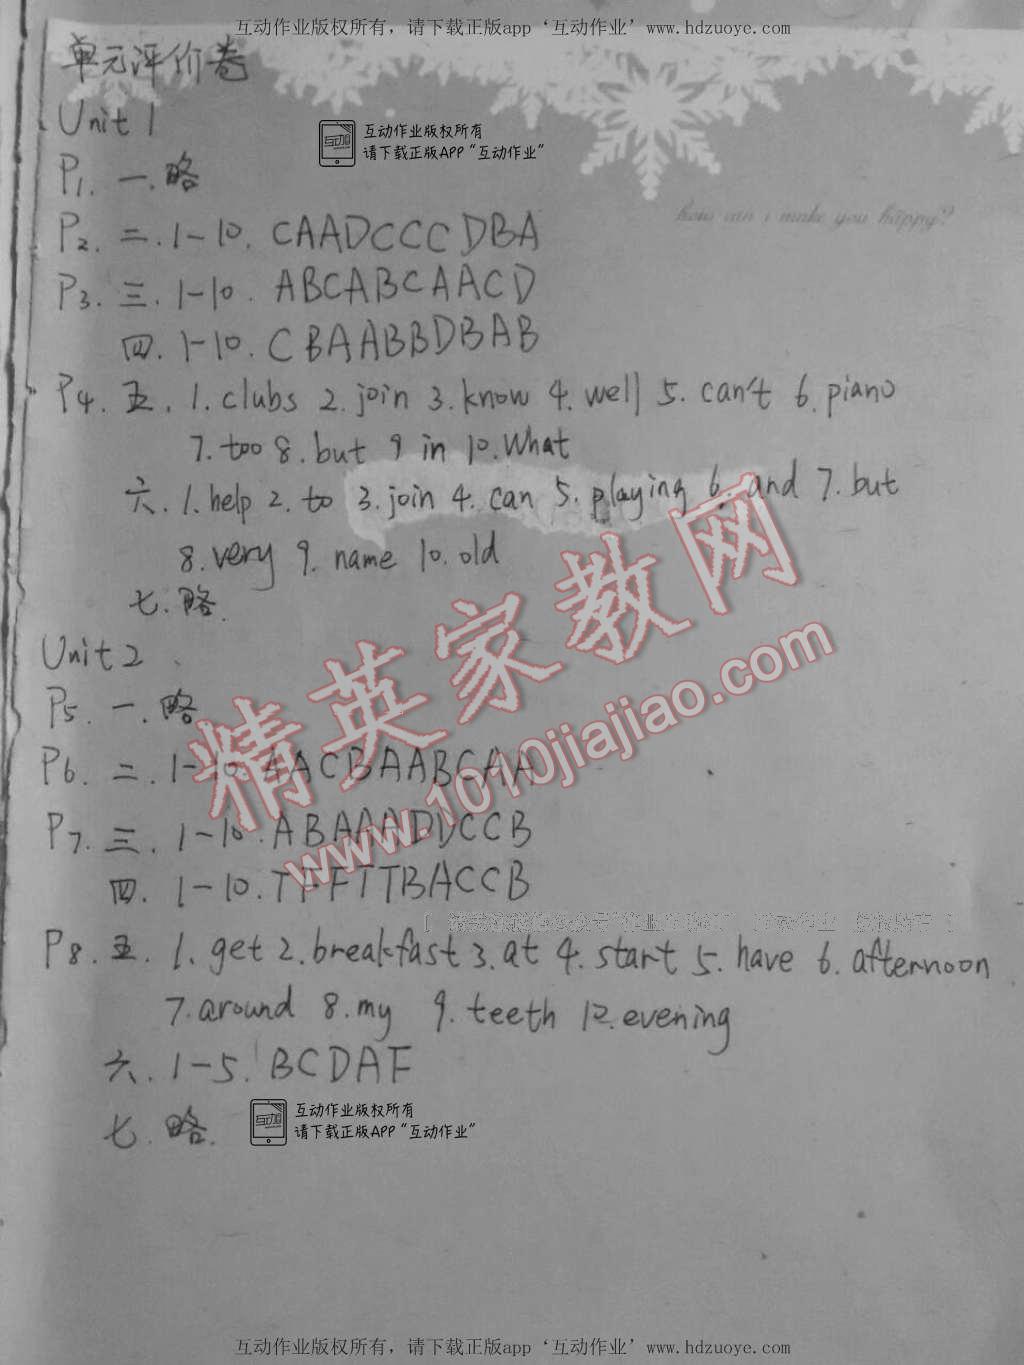 互动作业版权所有，请下载正版app‘互动作业’ www.hdzuoye.com
单元评价卷
Unit 1
互动作业版权所有
请下载正版APP“互动作业”
P1. 一.略
how can i make you happy?
P2. 二.1-10. CAADCCCDBA
P3. 三.1-10. ABCABCAACD
四.1-10. CBAABBDBAB
P4. 五.1.clubs 2.join 3.know 4.well 5.can't 6.piano
7.too 8.but 9 in 10.What
六.1.help 2.to 3.join 4.can 5.playing 6.and 7.but
8.very 9.name 10.old
七.略.
精英家教网
www.1010jiajiao.com
Unit 2
P5. 一.略
P6. 二.1-10. AACBAABCAA
P7. 三.1-10. ABAAADDCCB
四.1-10. TFFTTBACCB
P8. 五.1.get 2.breakfast 3.at 4.start 5.have 6.afternoon
7.around 8.my 9.teeth 12.evening
六.1-5. BCDAF
七.略.
互动作业版权所有
请下载正版APP“互动作业”
互动作业版权所有，请下载正版app‘互动作业’ www.hdzuoye.com